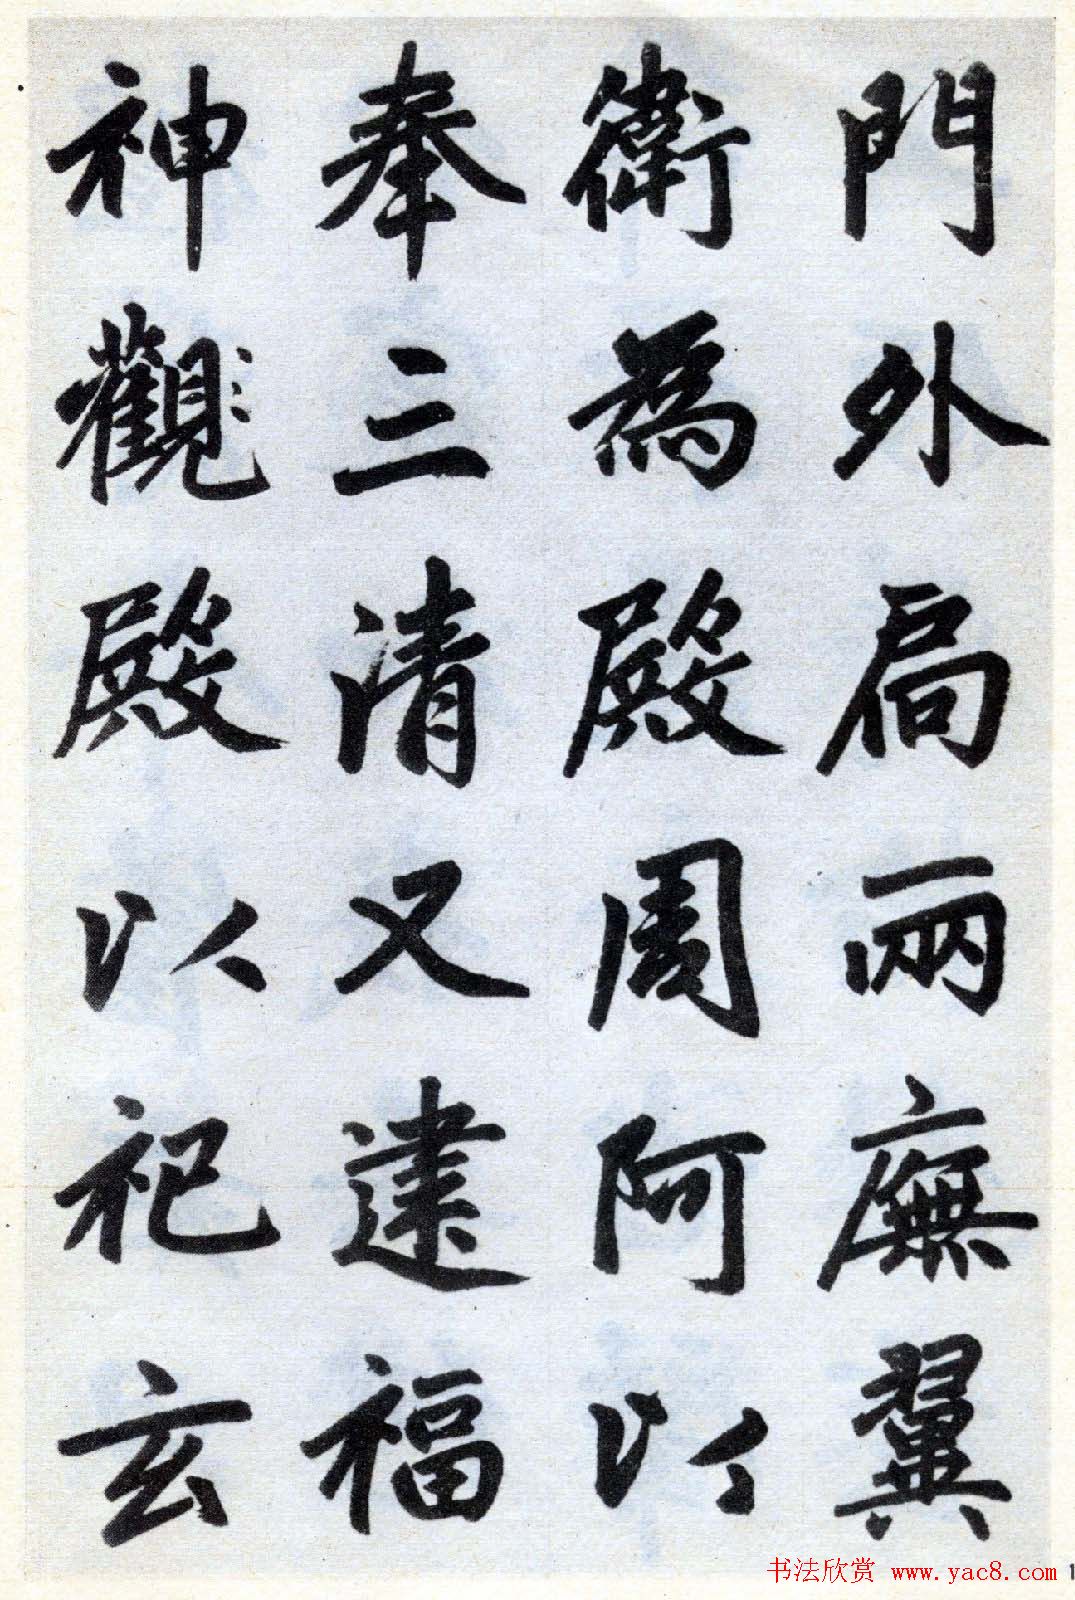 門外扃兩廡翼
衛為殿周阿以
奉三清又建福
神觀殿以祀玄
书法欣赏 www.yac8.com 1